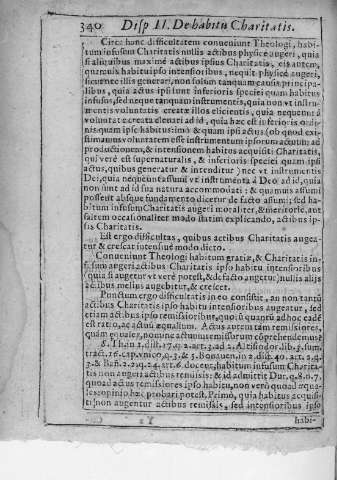 340 Disp II. De habitu Charitatis.
Circa hanc difficultatem conueniunt Theologi, habi-
tum infusum Charitatis nullis actibus physicè augeri, quia
si aliquibus maximè actibus ipsius Charitatis, eis autem,
quamuis habitu ipso intensioribus, nequit physicè augeri,
sicut nec illis generari, non solùm tanquam causis principa-
libus, quia actus ipsi sunt inferioris speciei quam habitus
infusus, sed neque tanquam instrumentis, quia non vt instru-
mentis voluntatis creatæ illos elicientis, quia nequeunt à
voluntate creata eleuari ad id, quia hæc est is inferioris ordi-
nis quàm ipse habitus: imò & quàm ipsi actus (ob quod exi-
stimamus voluntatem esse instrumentum ipsorum actuum) ad
productionem, & intensionem habitus acquisiti Charitatis,
qui verè est supernaturalis, & inferioris speciei quàm ipsi
actus, quibus generatur & intenditur) nec vt instrumentis
Dei, quia nequeunt assumi vt instrumenta à Deo ad id, quia
non sunt ad id sua natura accommodati: & quamuis assumi
possent absque fundamento dicetur de facto assumi; sed ha-
bitum infusum Charitatis augeri moraliter, & meritoriè, aut
saltem occasionaliter modo statim explicando, actibus ip-
sis Charitatis.
Est ergo difficultas, quibus actibus Charitatis augea-
tur & crescat intensiuè modo dicto.
Conueniunt Theologi habitum gratiæ, & Charitatis in-
fusum augeri actibus Charitatis ipso habitu intensioribus
(quia si augetur vt verè potest, & de facto augetur) nullis alijs
actibus melius augebitur, & crescet.
Punctum ergo difficultatis in eo consistit, an non tantùm
actibus Charitatis ipso habitu intensioribus augeatur, sed
etiam actibus ipso remissioribus, quotùquantù ad hoc eadē
est ratio, ac actuū æqualium. Actus autem tam remissiores,
quàm æquales, nomine actuum remissorum comprehendemus
S. Th. in 1. dist. 17. q. 2. art. 3. ad 2. Altisiodor. lib. 3. sum.
tract. 16. cap. vnico, q. 3. & 5. Bonauen. in 2. dist. 40. art. 2. q.
3. & Bass. 2. 29. q. 24. art. 6. docent, habitum infusum Charita-
tis non augeri actibus remissis: & id admittit Dur. q. 8. o. 7.
quoad actus remissiores ipso habitu, non verò quoad æqua-
les, opinio hæc probari potest. Primò, quia habitus acquisi-
ti non augentur actibus remissis, sed intensioribus ipso
Y 2 habi-